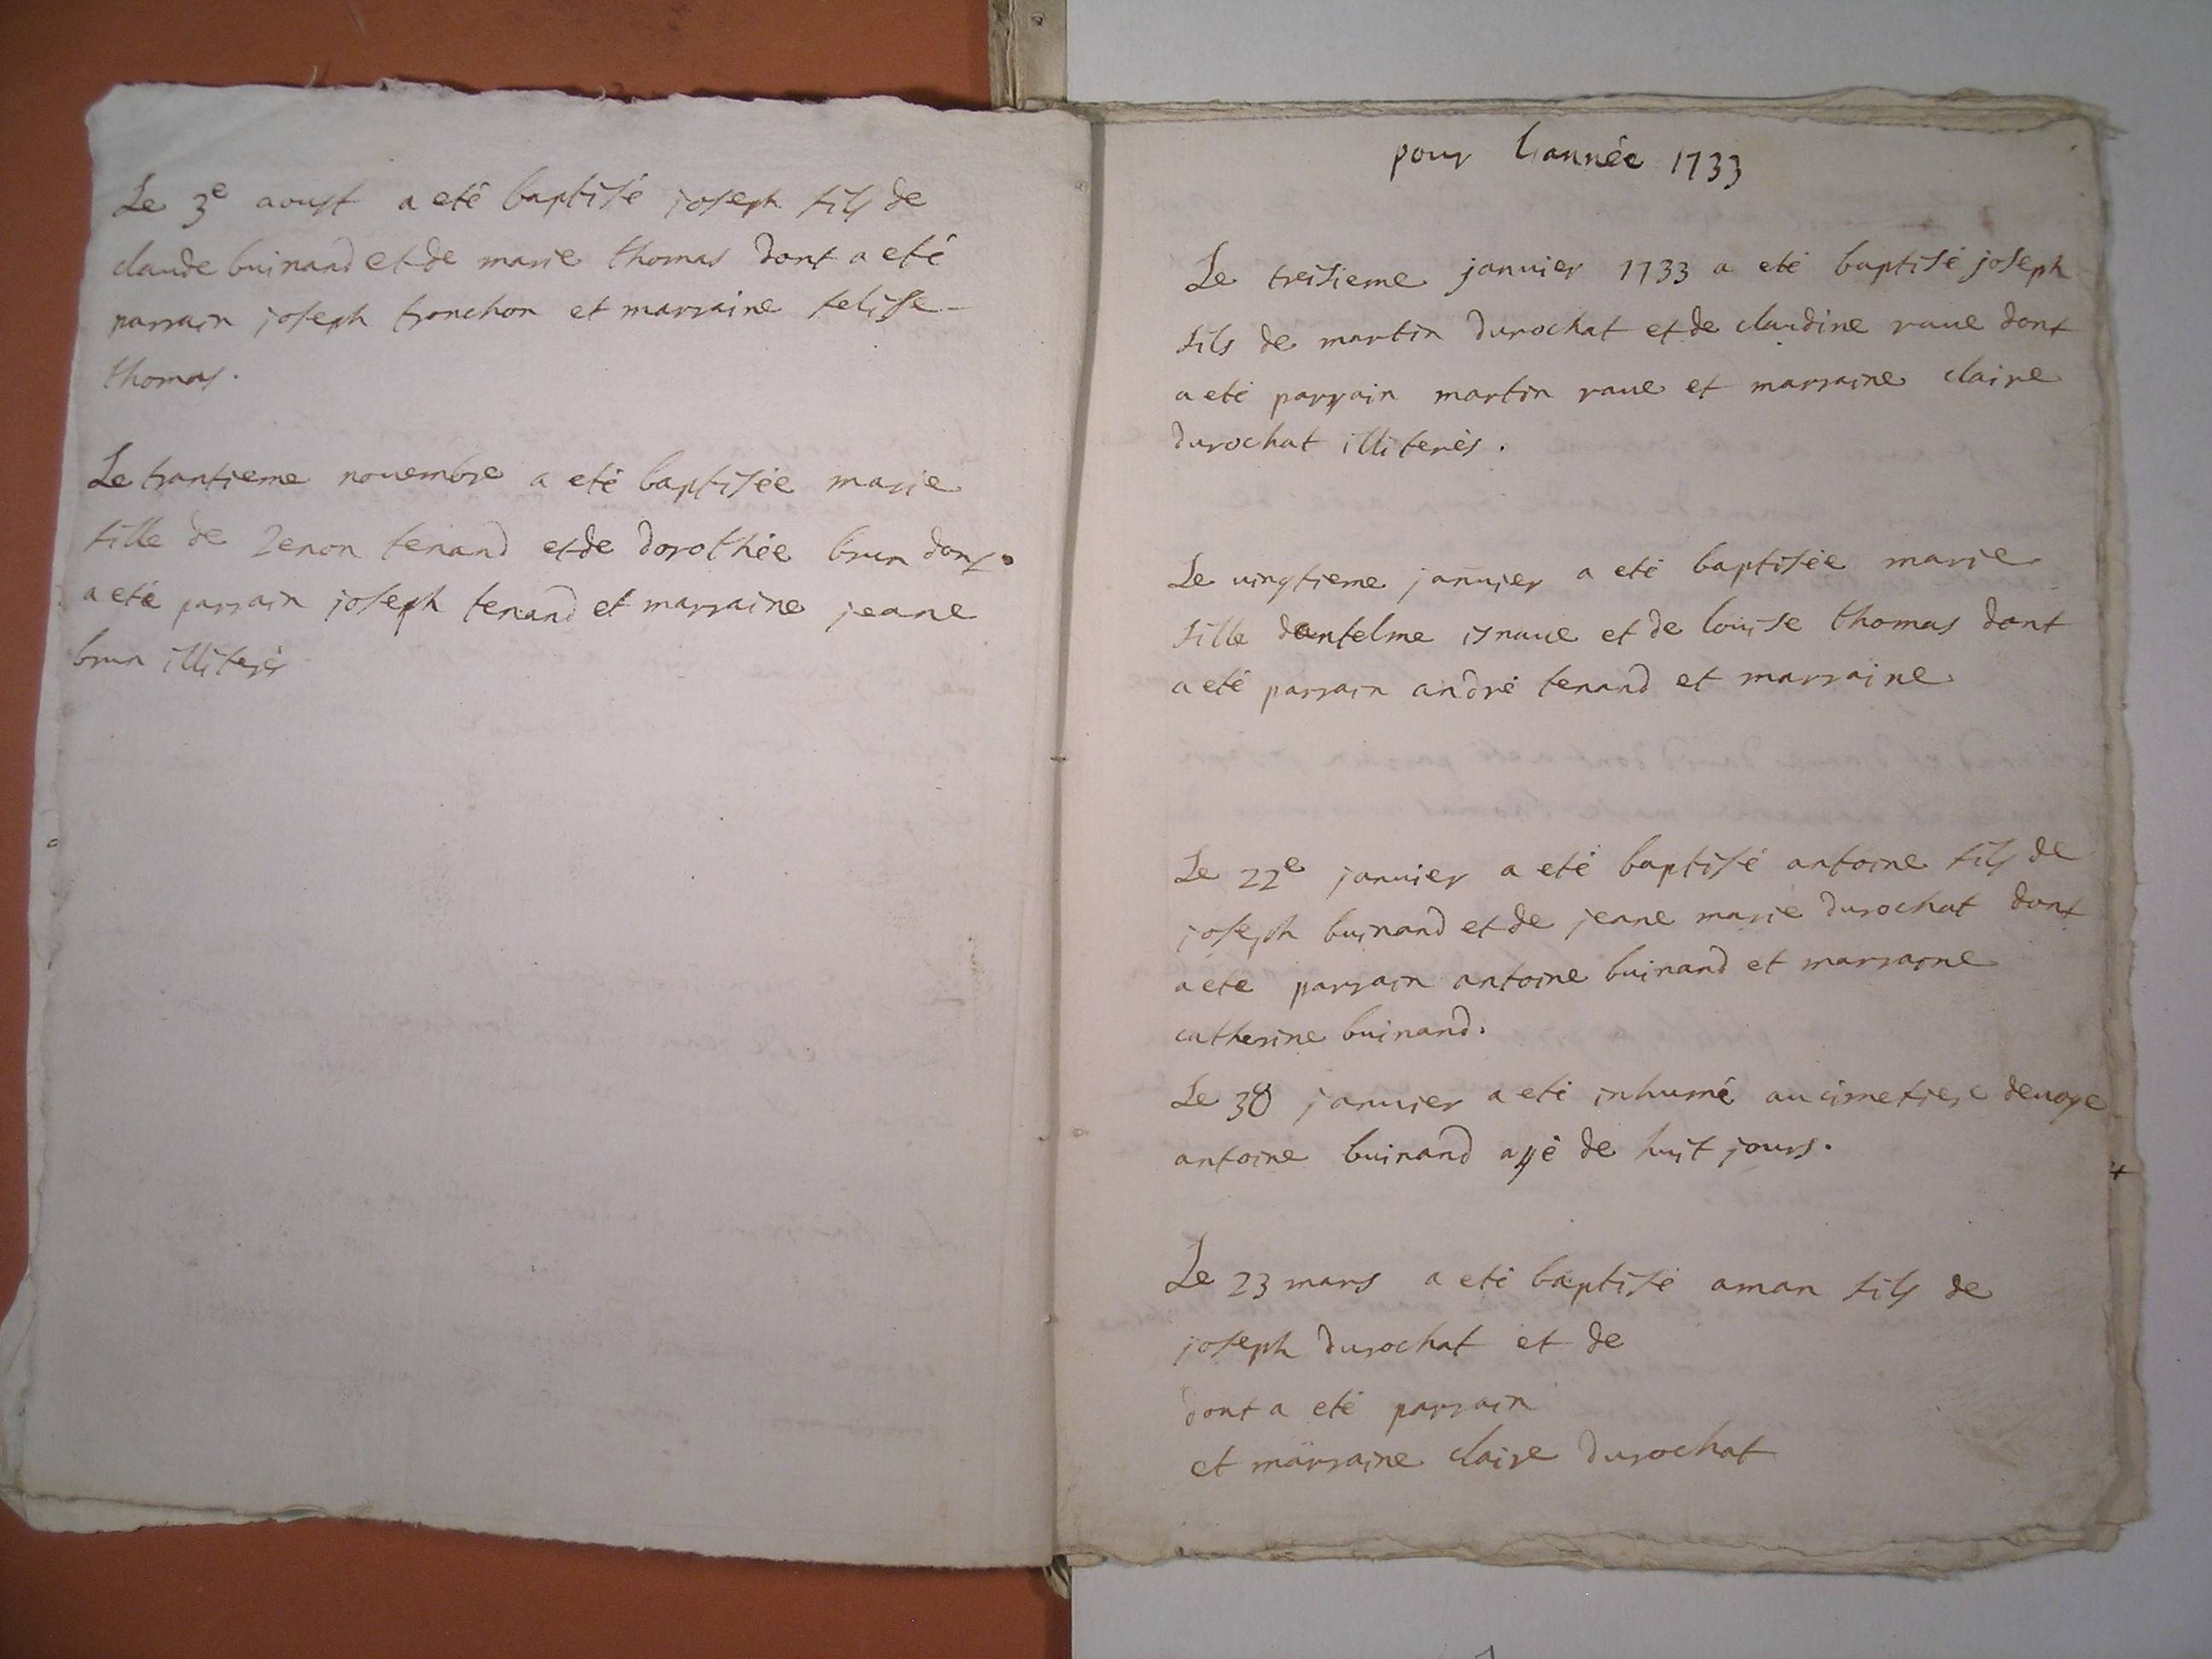 Le 3e aoust a eté baptisé joseph fils de
claude buinand et de marie thomas dont a eté
parrain joseph tronchon et marraine felisse
thomas.
Le trantieme nouembre a eté baptisée marie
fille de Zenon tenand et de dorothée brun dont
a eté parrain joseph tenand et marraine jeane
brun illiterés
pour l'année 1733
Le treisieme januier 1733 a eté baptisé joseph
fils de martin durochat et de claudine raue dont
a eté parrain martin raue et marraine claire
durochat illiterés.
Le uingtieme januier a eté baptisée marie
fille dantelme et de louise thomas dont
a eté parrain andré tenand et marraine
Le 22e januier a eté baptisé antoine fils de
joseph buinand et de jeane marie durochat dont
a eté parrain antoine buinand et marraine
catherine buinand.
Le 30 januier a eté inhumé au cimetiere
antoine buinand agé de huit jours.
Le 23 mars a eté baptisé aman fils de
joseph durochat et de
dont a eté parrain
et marraine claire durochat